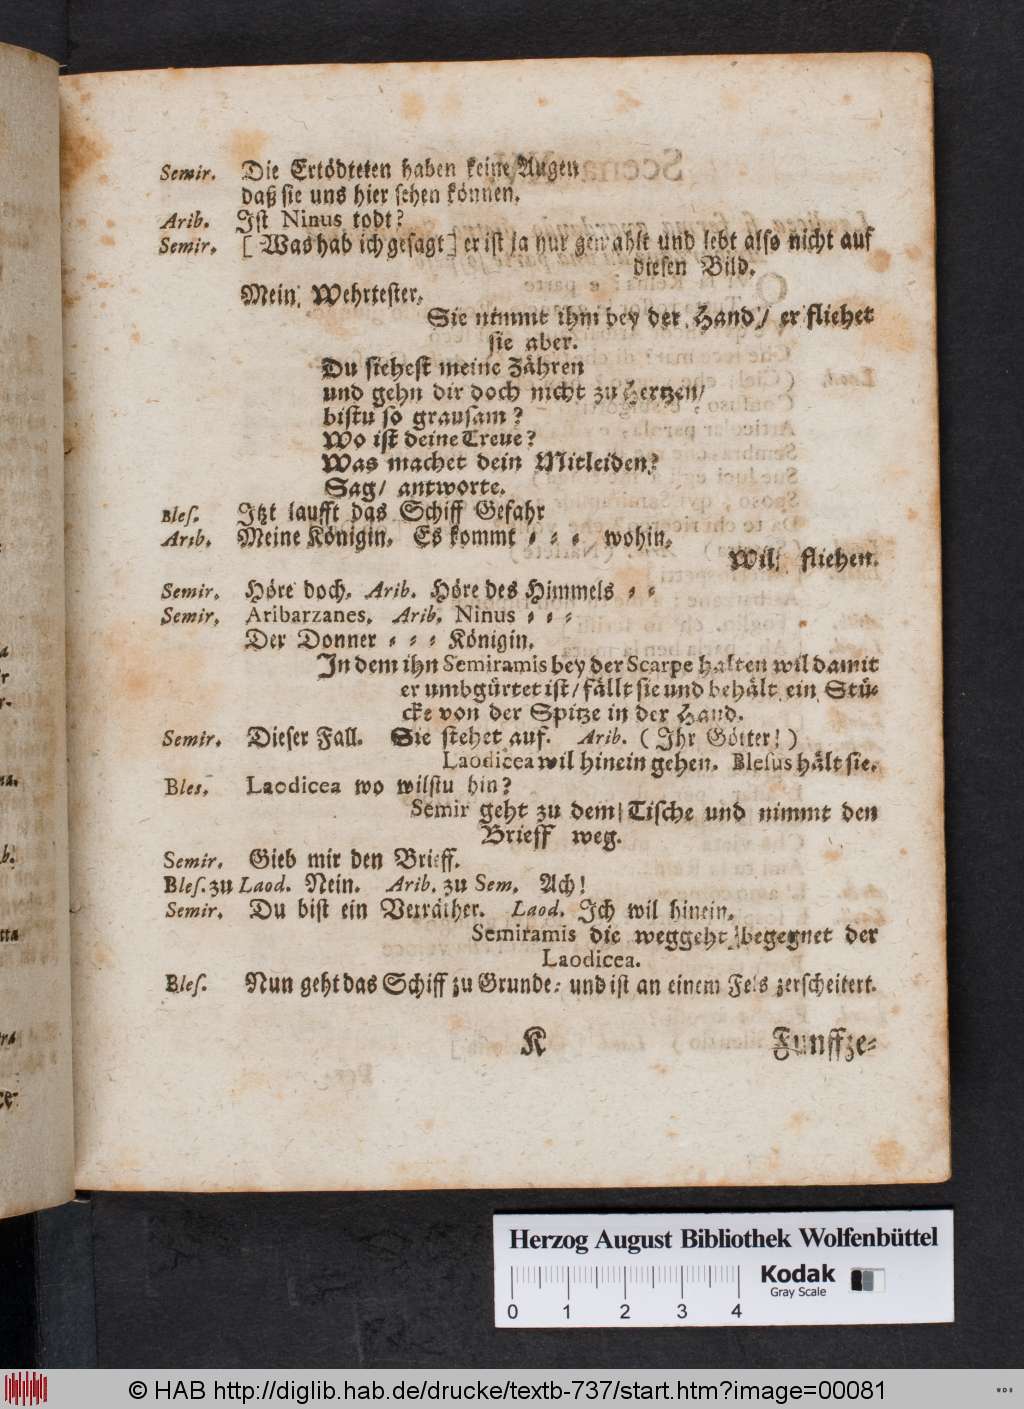 Semir. Die Ertödteten haben keine Augen
daß sie uns hier sehen können.
Arib. Ist Ninus todt?
Semir. [ Was hab ich gesagt ] er ist ja nur gemahlt und lebt also nicht auf
diesen Bild.
Mein Wehrtester,
Sie nimmt ihm bey der Hand / er fliehet
sie aber.
Du siehest meine Zähren
und gehn dir doch nicht zu Hertzen /
bistu so grausam?
Wo ist deine Treue?
Was machet dein Mitleiden?
Sag / antworte.
Bles. Itzt laufft das Schiff Gefahr
Arib. Meine Königin, Es kommt = = = wohin,
Wil fliehen.
Semir. Höre doch, Arib. Höre des Himmels = =
Semir. Aribarzanes, Arib. Ninus = = =
Der Donner = = = Königin.
In dem ihn Semiramis bey der Scarpe halten wil damit
er umbgürtet ist / fällt sie und behält ein Stü=
cke von der Spitze in der Hand.
Semir. Dieser Fall. Sie stehet auf. Arib. ( Ihr Götter! )
Laodicea wil hinein gehen. Blesus hält sie.
Bles. Laodicea wo wilstu hin?
Semir geht zu dem Tische und nimmt den
Brieff weg.
Semir. Gieb mir den Brieff.
Bles. zu Laod. Nein. Arib. zu Sem. Ach!
Semir. Du bist ein Verräther. Laod. Ich wil hinein,
Semiramis die weggeht begegnet der
Laodicea.
Bles. Nun geht das Schiff zu Grunde: und ist an einem Fels zerscheitert.
K Funffze=
Herzog August Bibliothek Wolfenbüttel
0 1 2 3 4 Kodak
Gray Scale
© HAB http://diglib.hab.de/drucke/textb-737/start.htm?image=00081